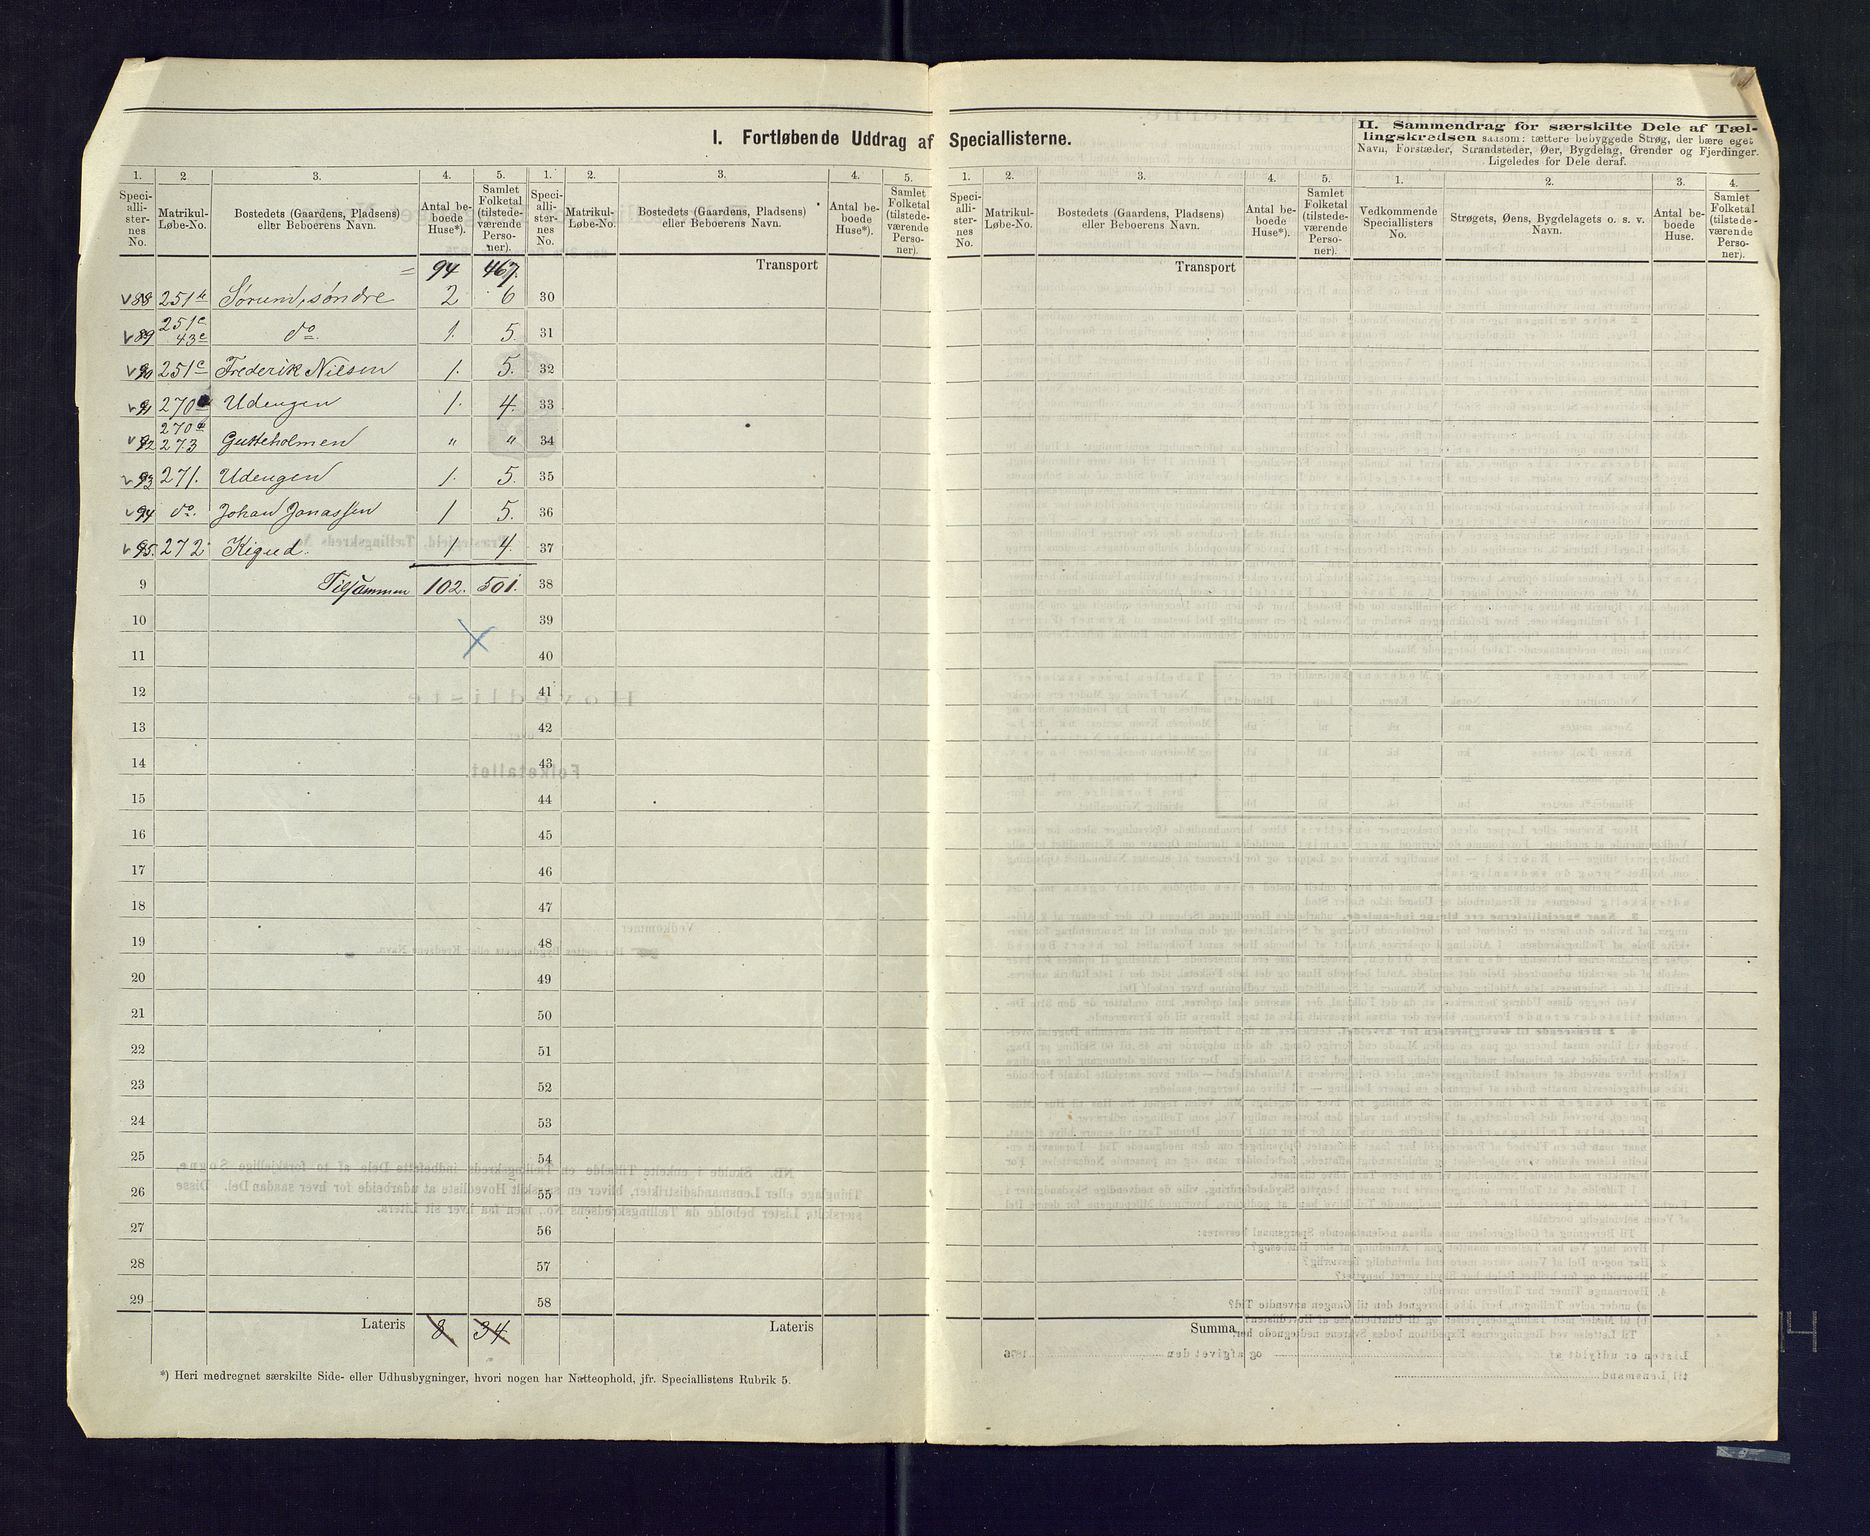 I. Fortløbende Uddrag af Speciallisterne.
II. Sammendrag for særskilte Dele af Tæl-
lingskredsen saasom: tættere bebyggede Strøg, der bære eget
Navn, Forstæder, Strandsteder, Øer, Bygdelag, Grender og Fjerdinger.
Ligeledes for Dele deraf.
1. 2 3. 4. 5. 1. 2. 3. 4. 5. 1. 2. 3. 4. 5. 1. 2. 3. 4.
Speci-allister-nes No. Matrikul-Løbe-No. Bostedets (Gaardens, Pladsens) eller Beboerens Navn. Antal be-boede Huse*). Samlet Folketal (tilstede-værende Perso-ner).
Speci-allister-nes No. Matrikul-Løbe-No. Bostedets (Gaardens, Pladsens) eller Beboerens Navn. Antal be-boede Huse*). Samlet Folketal (tilstede-værende Perso-ner).
Speci-allister-nes No. Matrikul-Løbe-No. Bostedets (Gaardens, Pladsens) eller Beboerens Navn. Antal be-boede Huse*). Samlet Folketal (tilstede-værende Perso-ner).
Vedkommende Speciallisters No. Strøgets, Øens, Bygdelagets o. s. v. Navn. Antal be-boede Huse. Samlet Folketal (tilstede-værende Perso-ner).
= 94 467. Transport Transport
88 251 Sørum, søndre 2 6 30
89 251c 43c do. 1. 5. 31
90 251c Frederik Nilsen 1. 5. 32
91 270 Udengen 1. 4. 33
92 270 273 Gutteholmen " " 34
93 271. Udengen 1. 5. 35
94 do. Johan Jonassen 1 5. 36
95. 272 Kigud. 1 4. 37
9 Tilsammen 102. 501. 38
10 39
11 40
12 41
13 42
14 43
15 44
16 45
17 46
18 47
19 48
20 49
21 50
22 51
23 52
24 53
25 54
26 55
27 56
28 57
29 58
Lateris 8 34 Lateris Summa
*) Heri medregnet særskilte Side- eller Udhusbygninger, hvori nogen har Natteophold, jfr. Speciallistens Rubrik 5.